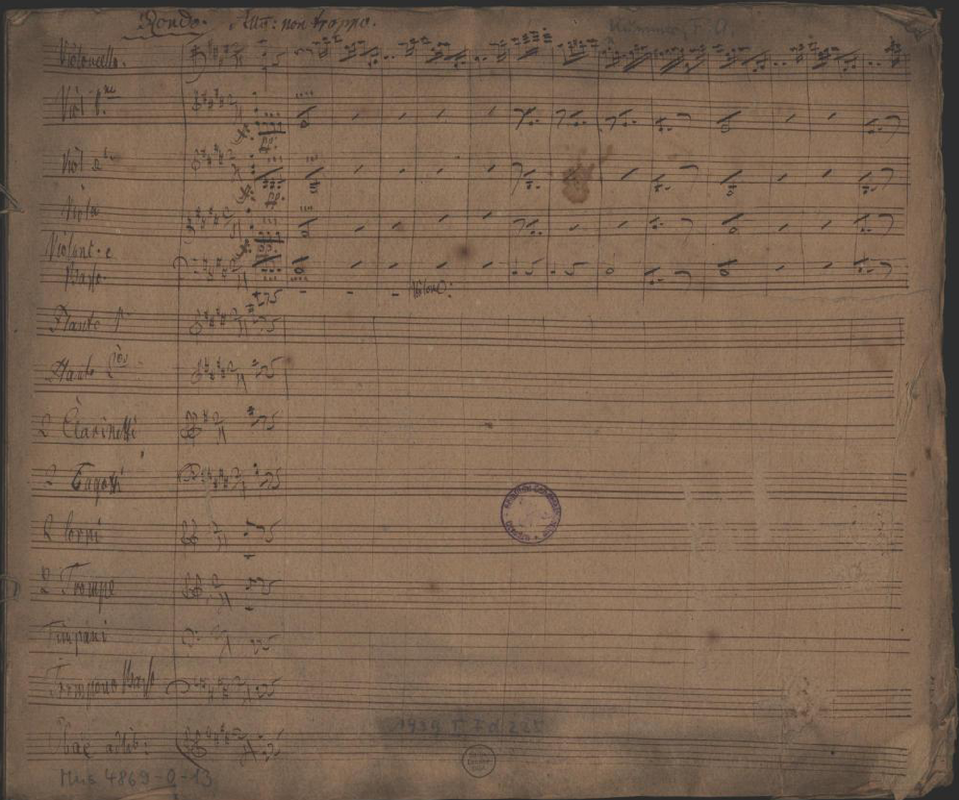 Rondo. Allo: non troppo.
Kummer, F. A.
Violoncello.
Viol 1mo
Viol 2do
Viola
Violonc. e
Basso.
Flauto 1o
Flauto 2do
2 Clarinetti
2 Fagotti
2 Corni
2 Trompe
Timpani
Trompono Basso
Oboe adlib:
1939 F Fd 225
Mus 4869-O-13